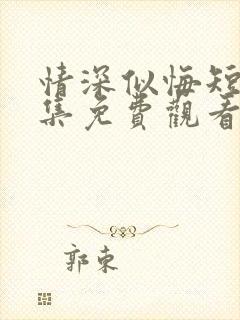 情深似悔短
集免費觀看
郭東